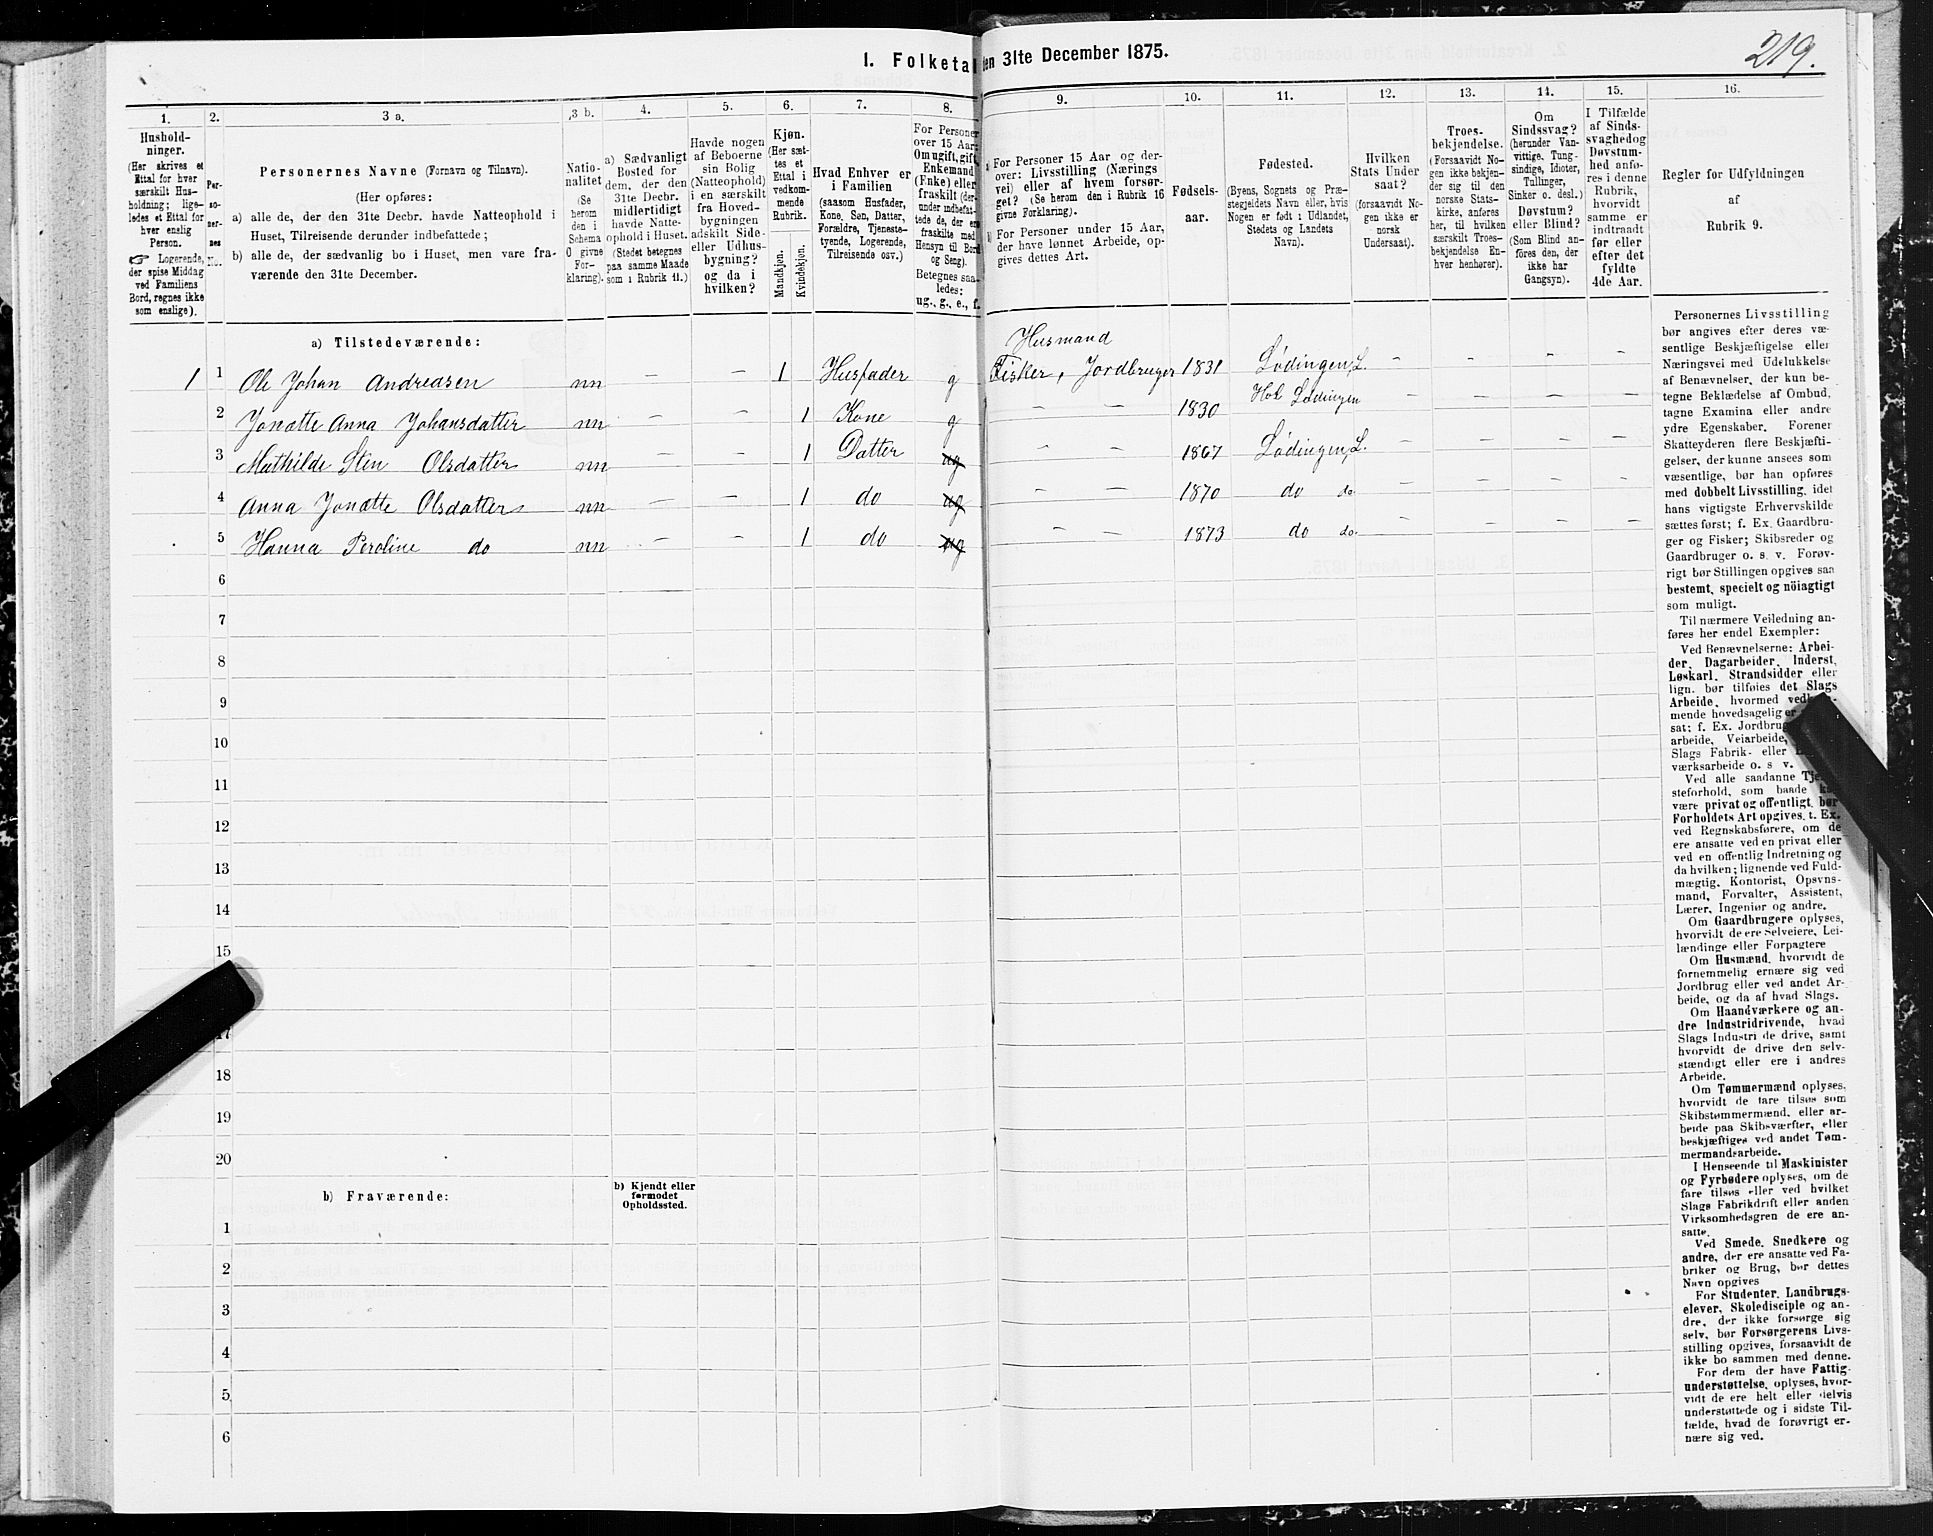 219.
1. Folketal den 31te December 1875.
1.
2.
3 a.
3 b.
4.
5.
6.
7.
8.
9.
10.
11.
12.
13.
14.
15.
16.
Hushold-
ninger.
(Her skrives et
Ettal for hver
særskilt Hus-
holdning; lige-
ledes et Ettal for
hver enslig
Person.
☞ Logerende,
der spise Middag
ved Familiens
Bord, regnes ikke
som enslige).
Per-
so-
ner-
nes
No.
Personernes Navne (Fornavn og Tilnavn).
(Her opføres:
a) alle de, der den 31te Decbr. havde Natteophold i
Huset, Tilreisende derunder indbefattede;
b) alle de, der sædvanlig bo i Huset, men vare fra-
værende den 31te December.
Natio-
nalitet
(Se
herom
den i
Schema
O givne
For-
klaring).
a) Sædvanligt
Bosted for
dem, der den
31te Decbr.
midlertidigt
havde Natte-
ophold i Huset.
(Stedet betegnes
paa samme Maade
som i Rubrik 11.)
Havde nogen
af Beboerne
sin Bolig
(Natteophold)
i en særskilt
fra Hoved-
bygningen
adskilt Side-
eller Udhus-
bygning?
og da i
hvilken?
Kjøn.
(Her sæt-
tes et
Ettal i
vedkom-
mende
Rubrik.
Mandkjøn.
Kvindekjøn.
Hvad Enhver er
i Familien
(saasom Husfader,
Kone, Søn, Datter,
Forældre, Tjeneste-
tyende, Logerende,
Tilreisende osv.)
For Personer
over 15 Aar:
Om ugift, gift,
Enkemand
(Enke) eller
fraskilt (der-
under indbefat-
tede de, der ere
fraskilte med
Hensyn til Bord
og Seng).
Betegnes saa-
ledes:
ug., g., e., f.
a) For Personer 15 Aar og der-
over: Livsstilling (Nærings
vei) eller af hvem forsør-
get? (Se herom den i Rubrik 16
givne Forklaring).
b) For Personer under 15 Aar,
der have lønnet Arbeide, op-
gives dettes Art.
Fødsels-
aar.
Fødested.
(Byens, Sognets og Præ-
stegjeldets Navn eller, hvis
Nogen er født i Udlandet,
Stedets og Landets
Navn).
Hvilken
Stats Under
saat?
(forsaavidt No-
gen ikke er
norsk
Undersaat).
Troes-
bekjendelse.
(Forsaavidt No-
gen ikke bekjen-
der sig til den
norske Stats-
kirke, anføres
her, til hvilken
særskilt Troes-
bekjendelse En-
hver henhører).
Om
Sindssvag?
(herunder Van-
vittige, Tung-
sindige, Idioter,
Tullinger,
Sinker o. desl.)
Døvstum?
eller Blind?
(Som Blind an-
føres den, der
ikke har
Gangsyn).
I Tilfælde
af Sinds-
svaghed og
Døvstum-
hed anfø-
res i denne
Rubrik,
hvorvidt
samme er
indtraadt
før eller
efter det
fyldte
4de Aar.
Regler for Udfyldningen
af
Rubrik 9.
a) Tilstedeværende:
Husmand
1 1 Ole Johan Andreasen nn — — 1 Husfader g Fisker, Jordbruger 1831 Lødingen, L. — — — —
2 Jonette Anna Johansdatter nn — — 1 Kone g — — 1830 Hol Lødingen — — — —
3 Mathilde Sten Olsdatter nn — — 1 Datter ug — — 1867 Lødingen, L. — — — —
4 Anna Jonette Olsdatter nn — — 1 do ug — — 1870 do do — — — —
5 Hanna Peroline do nn — — 1 do ug — — 1873 do do — — — —
6
7
8
9
10
11
12
13
14
15
17
18
19
20
b) Fraværende:
b) Kjendt eller
formodet
Opholdssted.
1
2
3
4
5
6
Personernes Livsstilling
bør angives efter deres væ-
sentlige Beskjæftigelse eller
Næringsvei med Udelukkelse
af Benævnelser, der kun be-
tegne Beklædelse af Ombud,
tagne Examina eller andre
ydre Egenskaber. Forener
Skatteyderen flere Beskjæfti-
gelser, der kunne ansees som
væsentlige, bør han opføres
med dobbelt Livsstilling, idet
hans vigtigste Erhvervskilde
sættes først; f. Ex. Gaardbru-
ger og Fisker; Skibsreder og
Gaardbruger o. s. v. Forøv-
rigt bør Stillingen opgives saa
bestemt, specielt og nöiagtigt
som muligt.
Til nærmere Veiledning an-
føres her endel Exempler:
Ved Benævnelserne: Arbei-
der, Dagarbeider, Inderst,
Løskarl, Strandsidder eller
lign. bør tilføies det Slags
Arbeide, hvormed vedkom-
mende hovedsagelig er
sat; f. Ex. Jordbrug
arbeide, Veiarbeide,
Slags Fabrik- eller
værksarbeide o. s v.
Ved alle saadanne Tje-
steforhold, som baade
være privat og offentligt, bør
Forholdets Art opgives, t. Ex.
ved Regnskabsførere, om de
ere ansatte ved en privat eller
ved en offentlig Indretning og
da hvilken; lignende ved Fuld-
mægtig, Kontorist, Opsyns-
mand, Forvalter, Assistent,
Lærer, Ingeniør og andre.
Om Gaardbrugere oplyses,
hvorvidt de ere Selveiere, Lei-
lændinge eller Forpagtere
Om Husmænd, hvorvidt de
fornemmelig ernære sig ved
Jordbrug eller ved andet Ar-
beide, og da af hvad Slags.
Om Haandværkere og an-
dre Industridrivende, hvad
Slags Industri de drive, samt
hvorvidt de drive den selv-
stændigt eller ere i andres
Arbeide.
Om Tømmermænd oplyses,
hvorvidt de fare tilsøs som
Skibstømmermænd, eller ar-
beide paa Skibsværfter, eller
beskjæftiges ved andet Tøm-
mermandsarbeide.
I Henseende til Maskinister
og Fyrbødere oplyses, om de
fare tilsøs eller ved hvilket
Slags Fabrikdrift eller anden
Virksomhedsgren de ere an-
satte.
Ved Smede, Snedkere og
andre, der ere ansatte ved Fa-
briker og Brug, bør dettes
Navn opgives
For Studenter, Landbrugs-
elever, Skoledisciple og an-
dre, der ikke forsørge sig
selv, bør Forsørgerens Livs-
stilling opgives, forsaavidt de
ikke bo sammen med denne.
For dem der have Fattig-
understøttelse, oplyses, hvor-
vidt de ere helt eller delvis
understøttede og i sidste Til-
fælde, hvad de forøvrigt er-
nære sig ved.